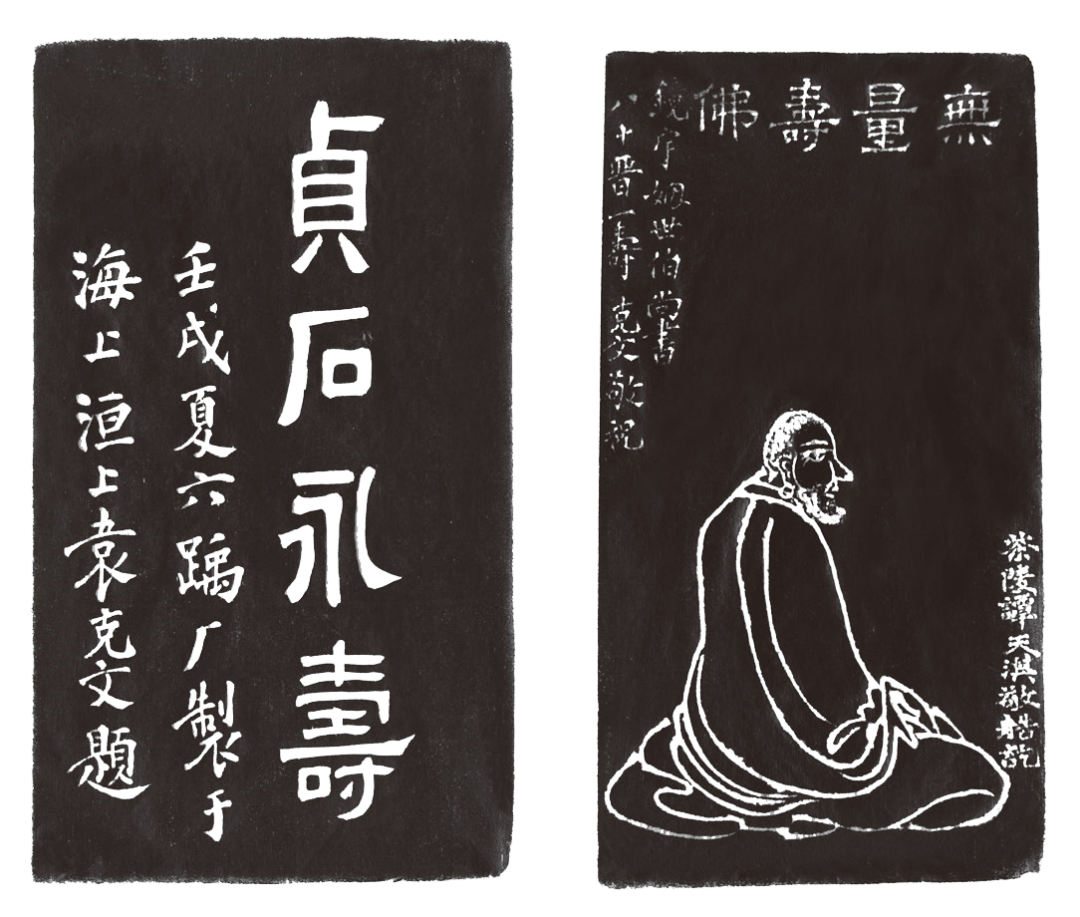 貞石永壽
壬戌夏六踽厂製于
海上洹上袁克文題
無量壽佛
鏡宇姻世伯尚書
八十晋一壽克文敬祝
茶陵譚天淇敬